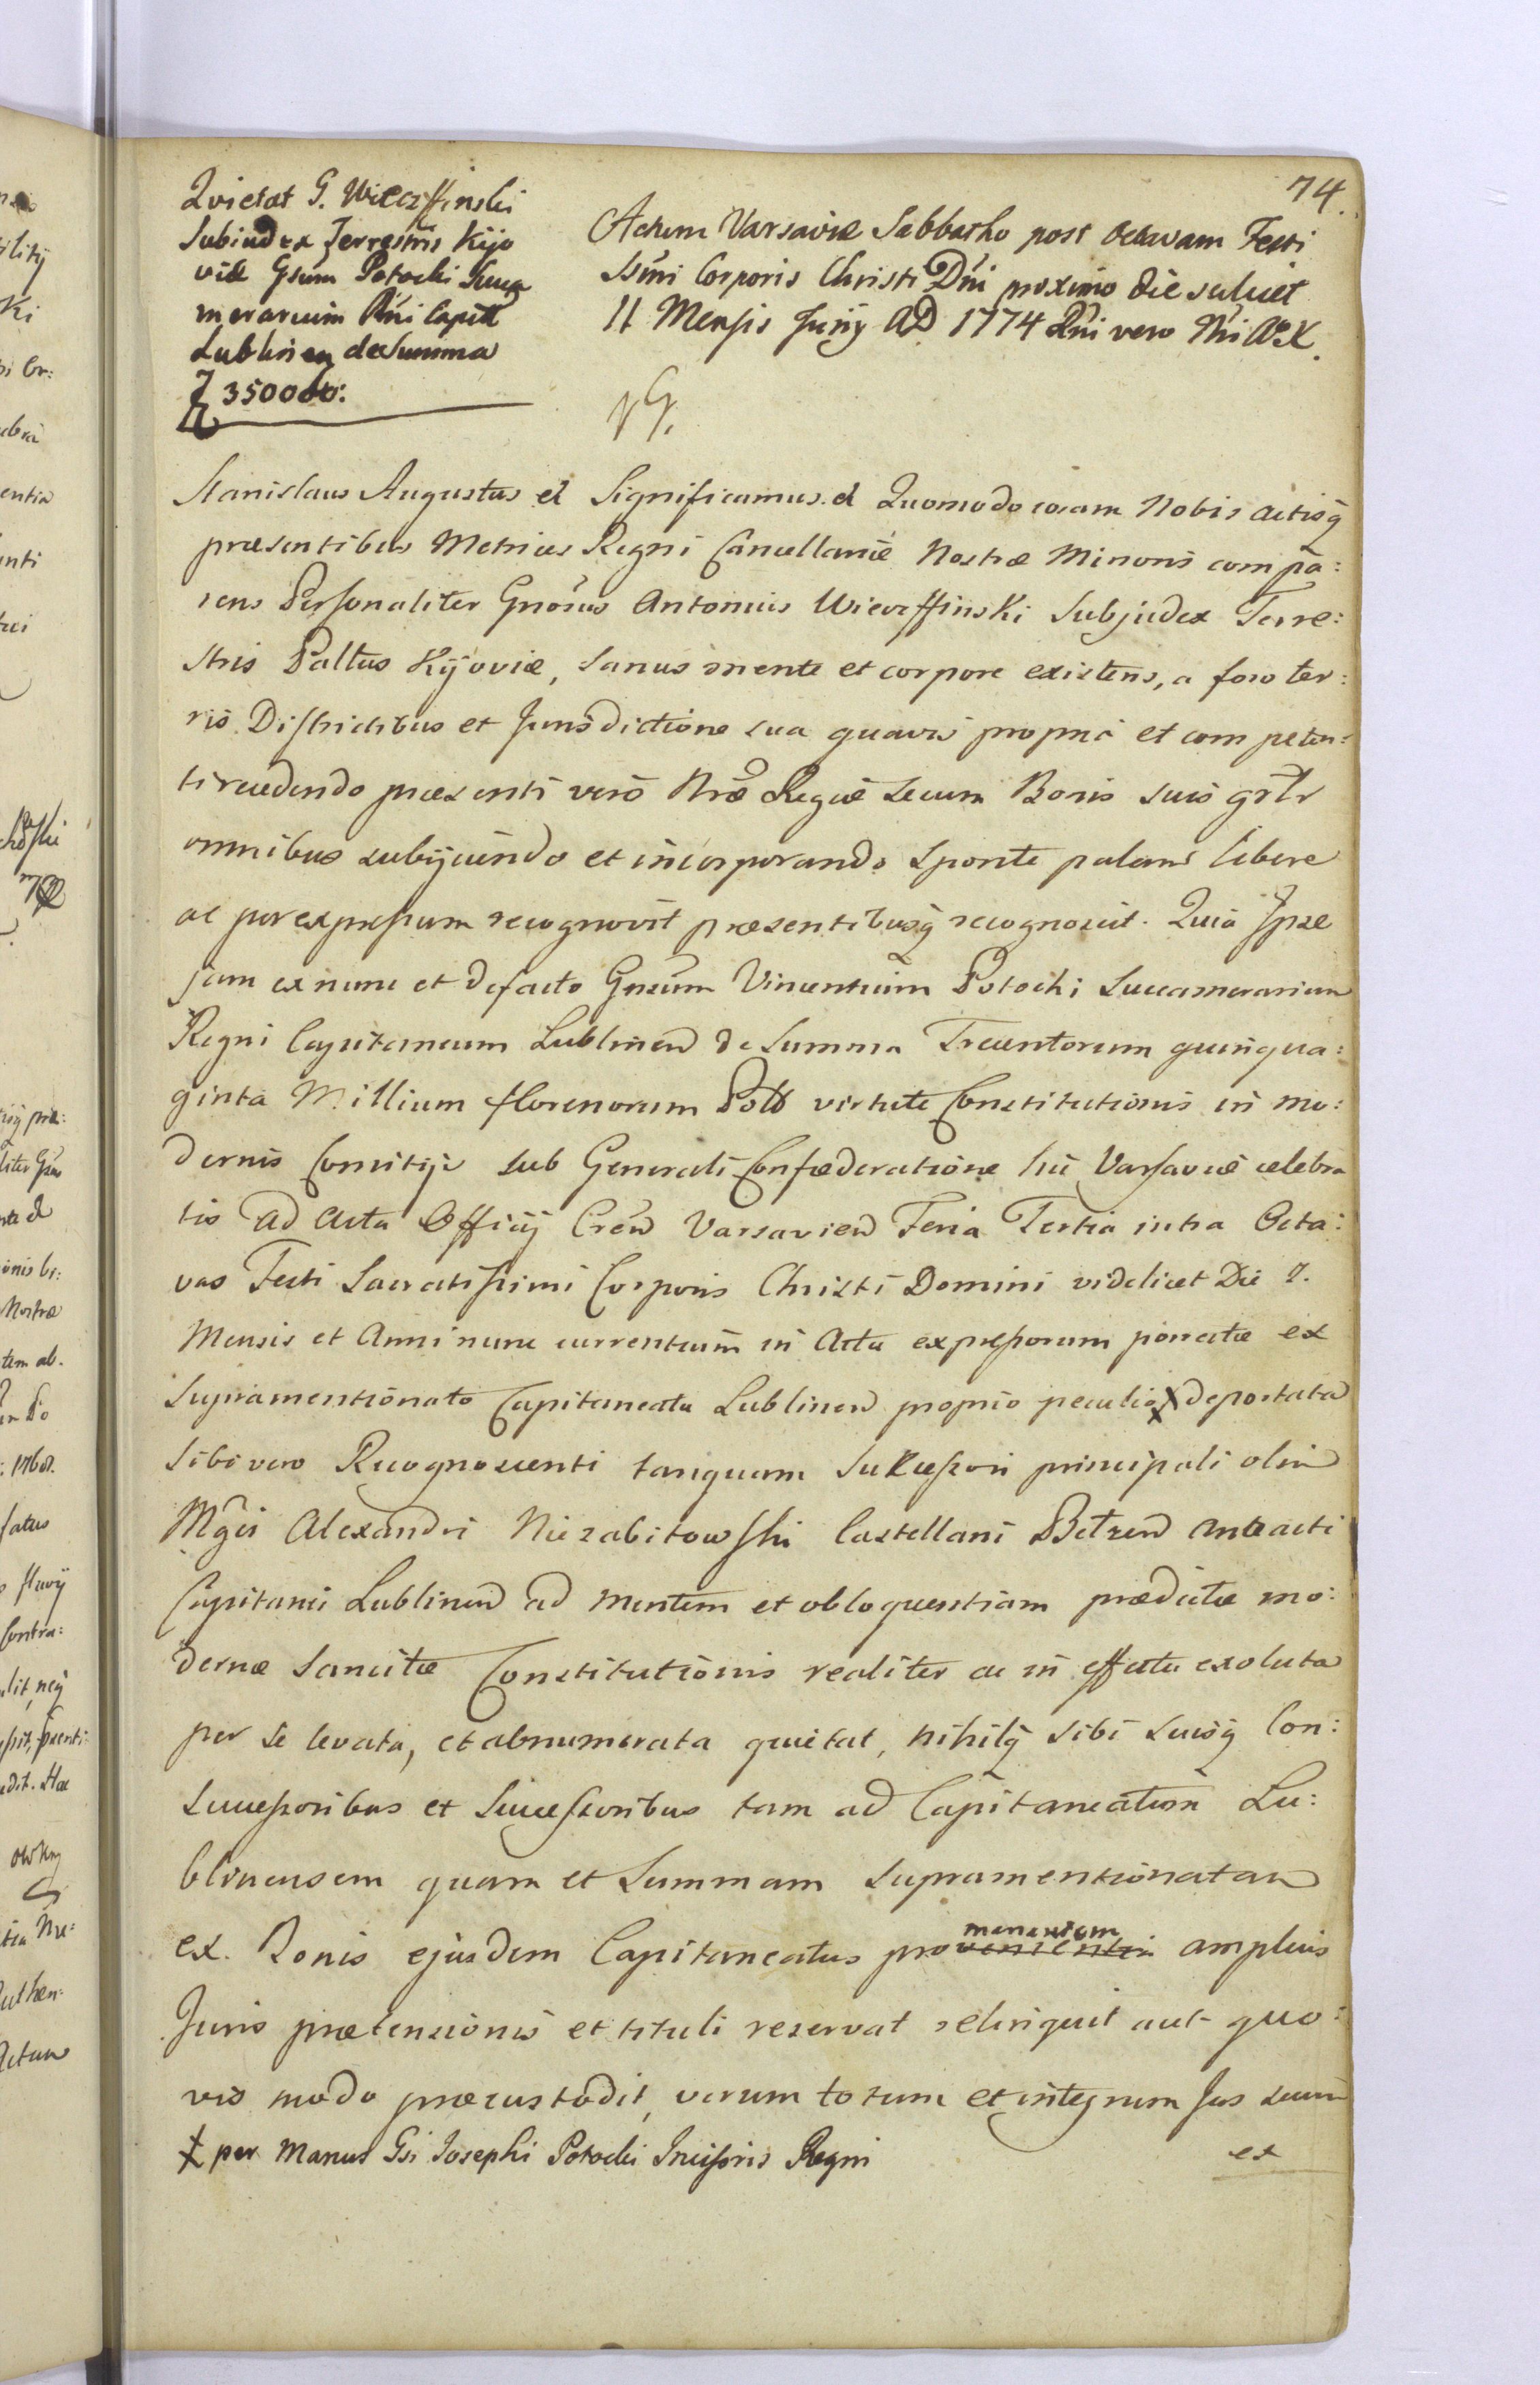 74.
Quietat G. Wieczffinski
Subiudex Terrestris Kijo
viæ Gsum Potocki Succa
merarium Rni Capit
Lublinen de Summa
f 350000:
Actum Varsaviæ Sabbatho post Octavam Festi
Ssmi Corporis Christi Dni proximo die scilicet
11 Mensis Junij AD 1774 Rni vero Nri Ao X.
Stanislaus Augustus et Significamus et Quomodo coram Nobis actisq
præsentibus Metrices Regni Cancellariæ Nostræ Minoris compa:
rens Personaliter Gnosus Antonius Wieczffinski Subjudex Terre:
stris Palttus Kijoviæ, sanus mente et corpore existens, a foro ter:
ris Districtibus et Jurisdictione sua quavis propria et competen:
ti recedendo præsenti vero Nræ Regiæ secum Bonis suis grltr
omnibus subijciendo et incorporando sponte palam libere
ac per expressum recognovit præsentibusq recognoscit. Quia Ipse
jam ex nunc et defacto Gnsum Vincentium Potocki Succamerarium
Regni Capitaneum Lublinen de Summa Trecentorum quinqua:
ginta Millium florenorum Poll virtute Constitutionis in mo:
dernis Comitijs sub Generali Confœderatione hic Varsaviæ celebra
tis ad Acta Officij Cren Varsavien Feria Tertia intra Octa:
vas Festi Sacratissimi Corporis Christi Domini videlicet Die 7.
Mensis et Anni nunc currentium in Actu expressorum porrectæ ex
Supramentionato Capitaneatu Lublinen proprio peculio X deportata
sibi vero Recognoscenti tanquam Sukcessori principali olim
Mgci Alexandri Niezabitowski Castellani Betzen anteacti
Capitanei Lublinen ad mentem et obloquentiam prædictæ mo:
dernæ Sancitæ Constitutionis realiter ac in effectu exoluta
per se levata, et abnumerata quietat, nihilq sibi suisq Con:
Successoribus et Successoribus tam ad Capitaneatum Lu:
blinensem quam et Summam supramentionatam
ex Bonis ejusdem Capitaneatus promanantem amplius
Juris prætensionis et tituli reservat relinquit aut quo:
vis modo præcustodit, verum totum et integrum Jus suum
X per Manus Gsi Josephi Potocki Incisoris Regni
et